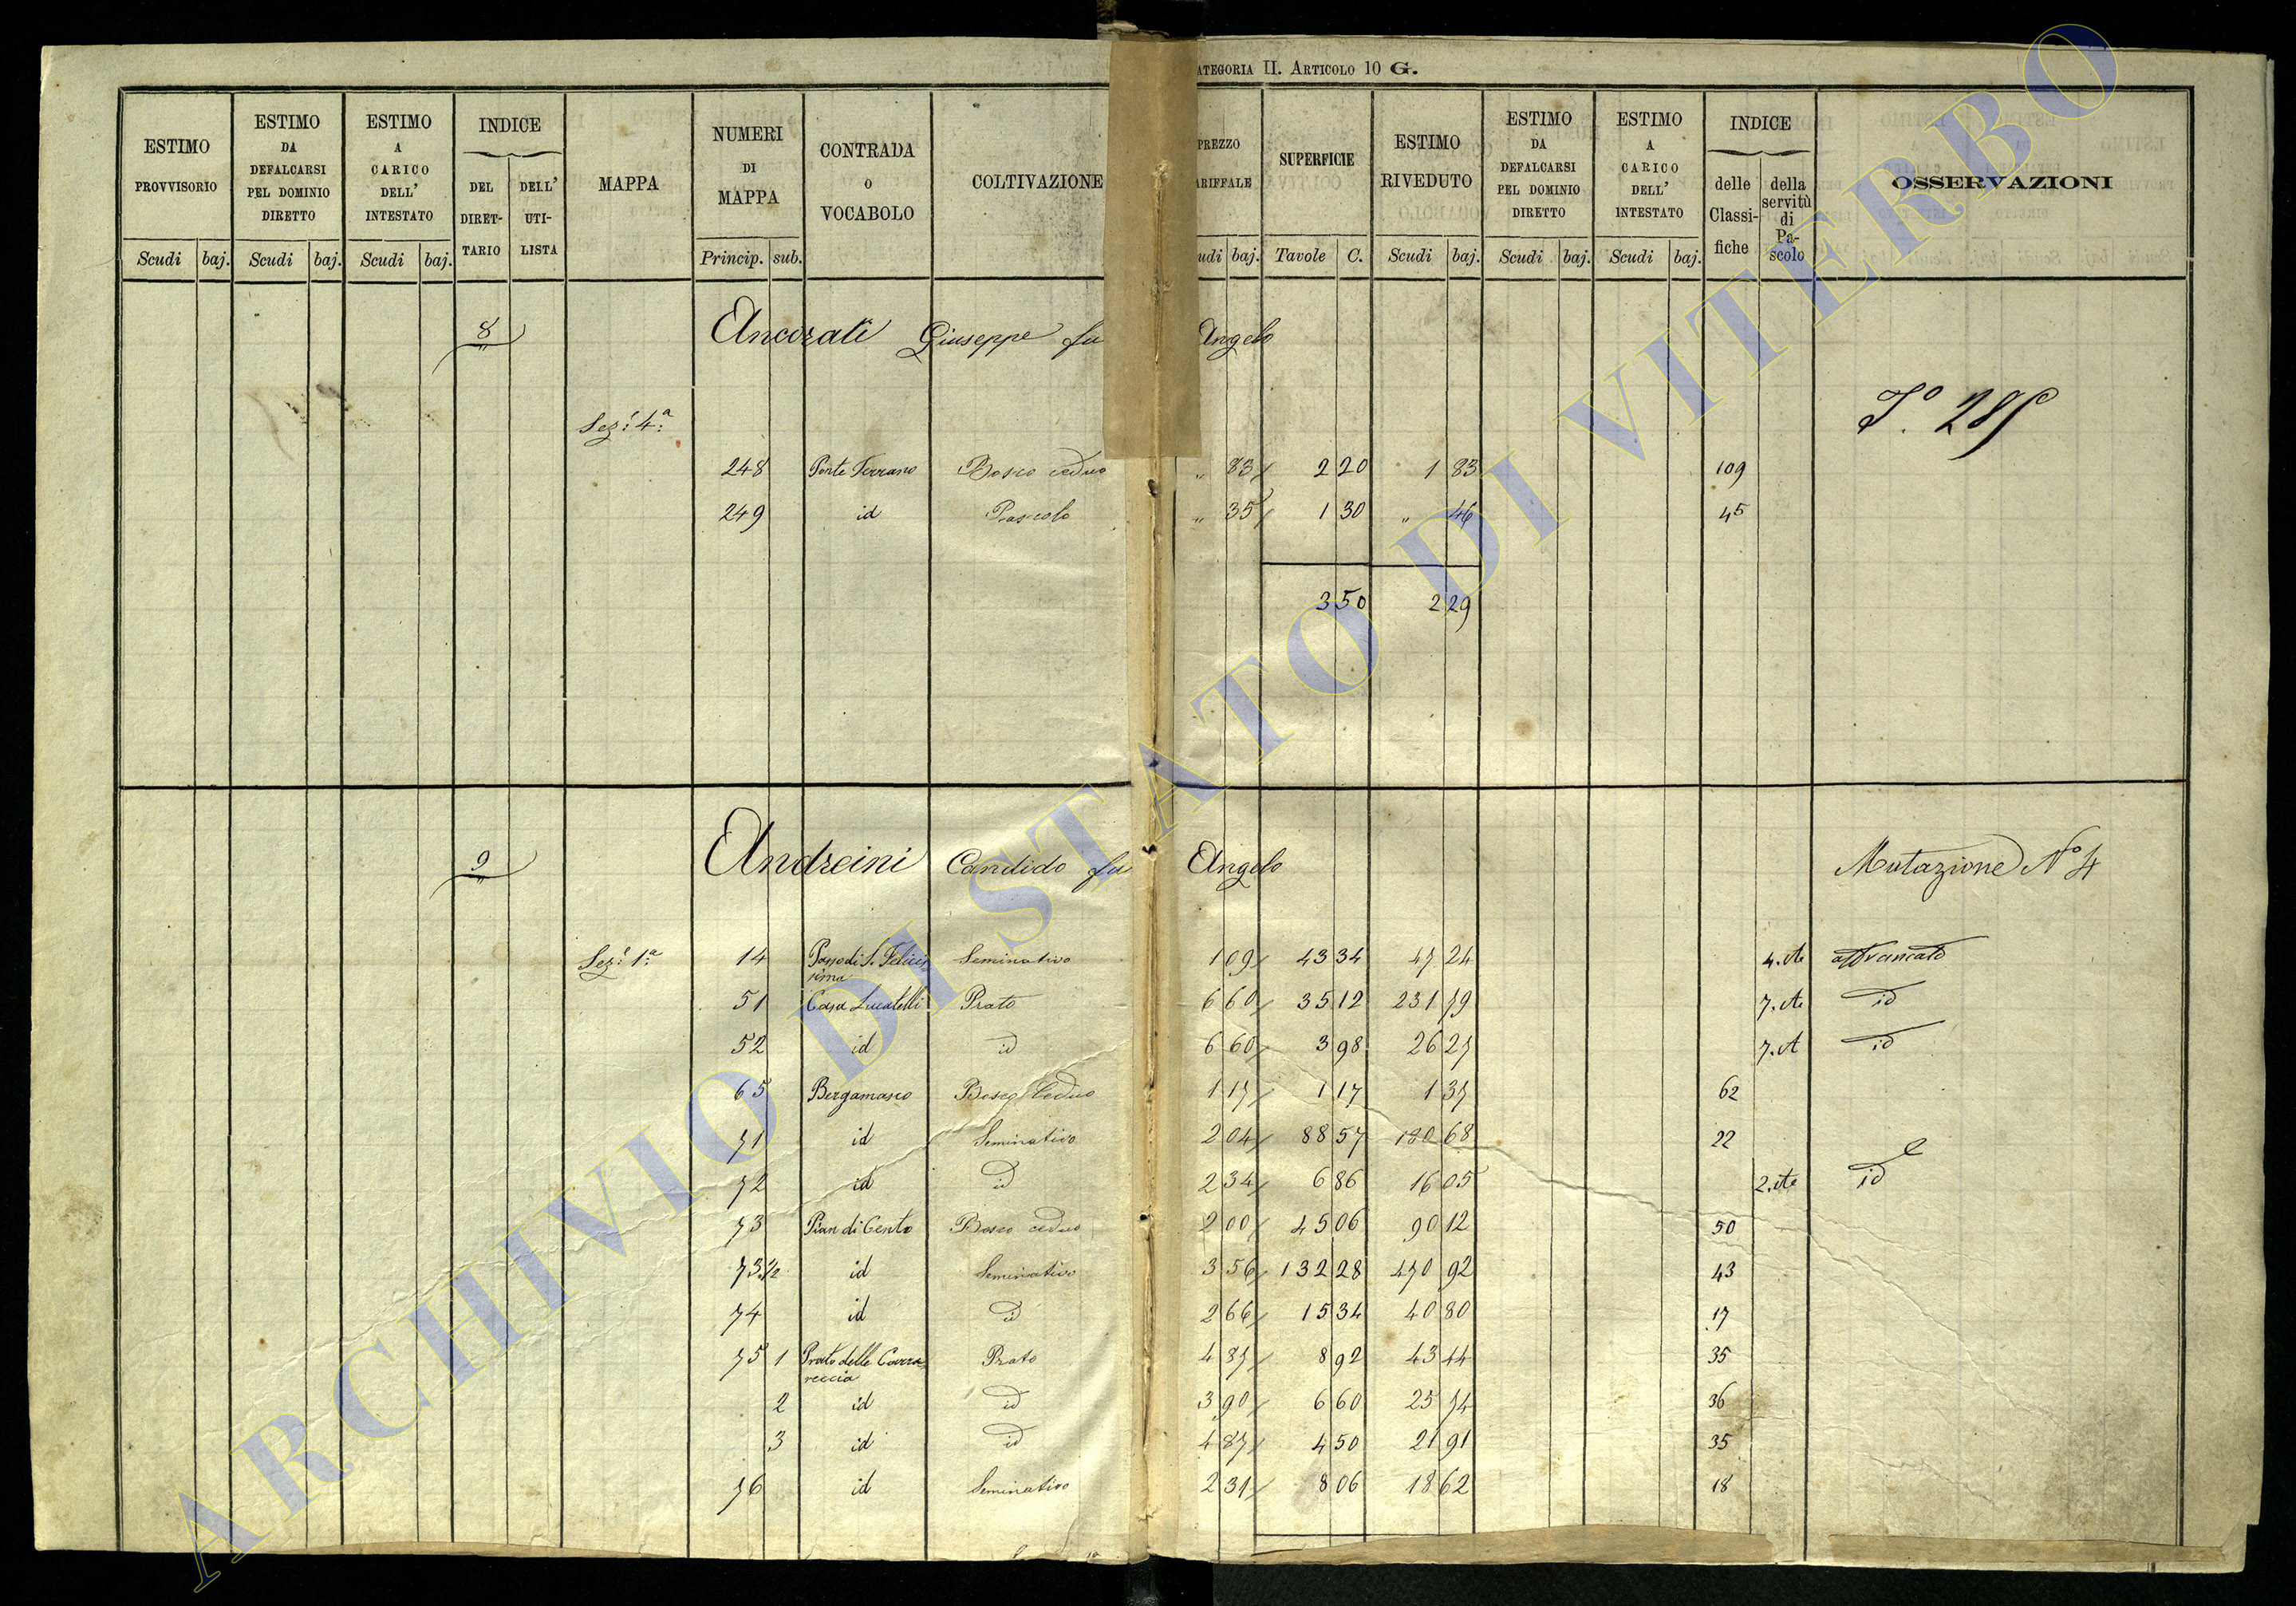 ATEGORIA II. ARTICOLO 10 G.
ESTIMO PROVVISORIO Scudi baj. | ESTIMO DA DEFALCARSI PEL DOMINIO DIRETTO Scudi baj. | ESTIMO A CARICO DELL' INTESTATO Scudi baj. | INDICE DEL DIRET-TARIO DELL' UTI-LISTA | MAPPA | NUMERI DI MAPPA Princip. sub. | CONTRADA O VOCABOLO | COLTIVAZIONE | PREZZO ARIFFALE udi baj. | SUPERFICIE Tavole C. | ESTIMO RIVEDUTO Scudi baj. | ESTIMO DA DEFALCARSI PEL DOMINIO DIRETTO Scudi baj. | ESTIMO A CARICO DELL' INTESTATO Scudi baj. | INDICE delle Classi-fiche della servitù di Pa-scolo | OSSERVAZIONI
8 Ancorati Giuseppe fu Angelo
Sez: 4ª:
248 Ponte Terrano Bosco ceduo " 83 2 20 1 83 109
249 id Pascolo " 35 1 30 " 46 45
3 50 2 29
9 Andreini Candido fu Angelo Mutazione Nº 4
Sez: 1ª: 14 Passo di S. Felicis-sima Seminativo 1 09 43 34 47 24 4. A affrancato
51 Casa Lucatelli Prato 6 60 35 12 231 79 7. A id
52 id id 6 60 3 98 26 27 7. A id
65 Bergamasco Bosco Ceduo 1 17 1 17 1 37 62
71 id Seminativo 2 04 88 57 180 68 22
72 id id 2 34 6 86 16 05 2. A id
73 Pian di Cento Bosco ceduo 2 00 45 06 90 12 50
73 1/2 id Seminativo 3 56 132 28 470 92 43
74 id id 2 66 15 34 40 80 17
75 1 Prato delle Carra-reccia Prato 4 87 8 92 43 44 35
2 id id 3 90 6 60 25 74 36
3 id id 4 87 4 50 21 91 35
76 id Seminativo 2 31 8 06 18 62 18
ARCHIVIO DI STATO DI VITERBO